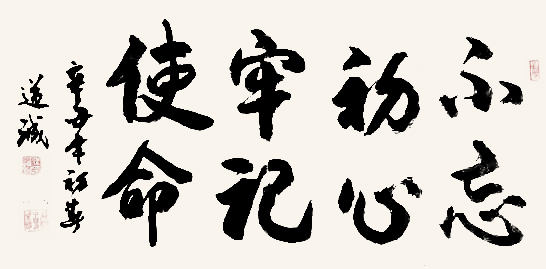 不忘
初心
牢记
使命
辛丑年初春
道诚